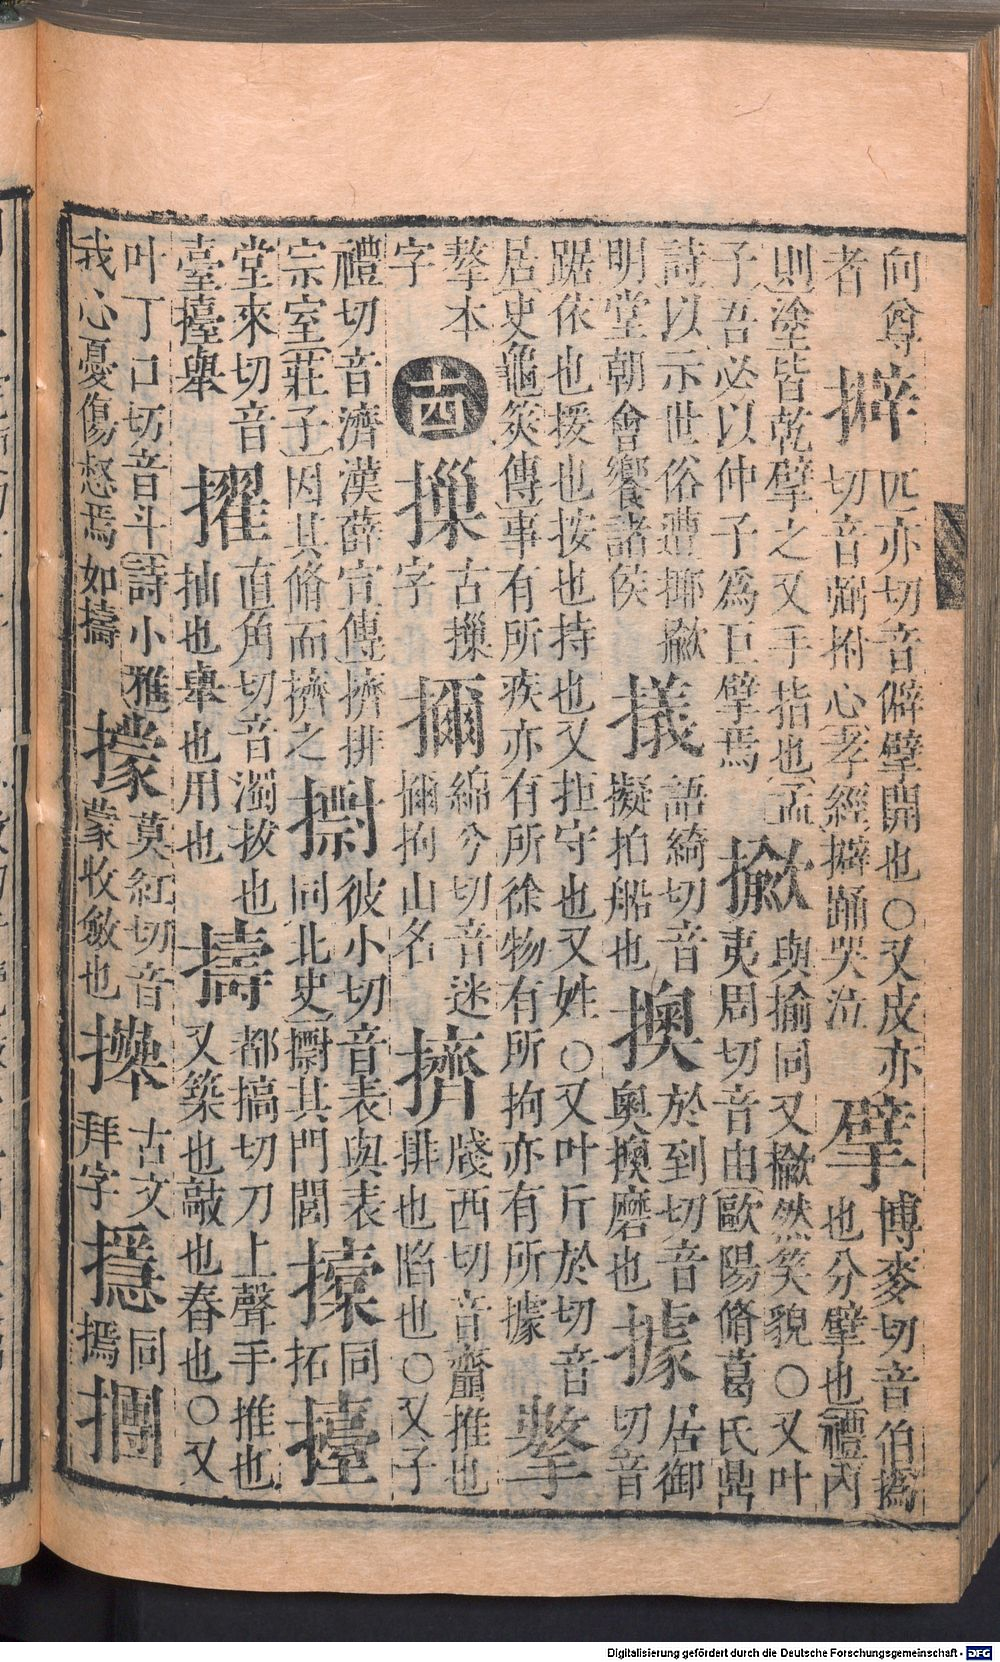 向尊
者
擗
匹亦切音僻擘開也○又皮亦
切音拊心孝經擗踊哭泣
擘
博麥切音伯撝
也分擘也禮內
則塗皆乾擘之又手指也孟
子吾必以仲子爲巨擘焉
擨
與揄同又擨然笑貌○又叶
夷周切音由歐陽脩葛氏鼎
詩以示世俗遭揶擨
明堂朝會饗諸侯
語綺切音
擬拍船也
擙
於到切音
奧擙磨也
據
居御
切音
踞依也援也按也持也又拒守也又姓○又叶斤於切音
居史龜筴傳事有所疾亦有所徐物有所拘亦有所據
本
字
十四
古摷
字
擟
綿兮切音迷
擟拘山名
擠
牋西切音齎推也
排也陷也○又子
禮切音濟漢薛宣傳擠排
宗室莊子因其脩而擠之
彼小切音表與表
同北史其門閭
同
拓
擡
堂來切音
臺擡舉
擢
直角切音濁拔也
抽也舉也用也
擣
都搞切刀上聲手推也
又築也敲也舂也○又
叶丁口切音斗詩小雅
我心憂傷惄焉如擣
莫紅切音
蒙收斂也
古文
拜字
同
撝
Digitalisierung gefördert durch die Deutsche Forschungsgemeinschaft - DFG